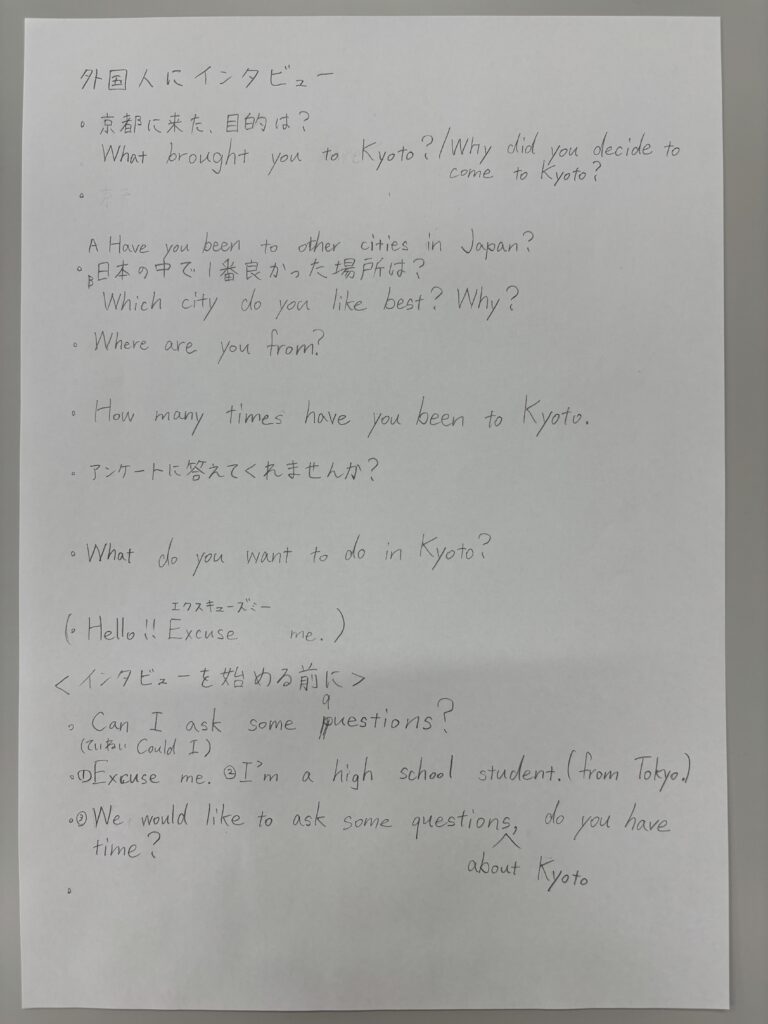 外国人にインタビュー
。京都に来た、目的は?
What brought you to Kyoto?/Why did you decide to
come to Kyoto?
。
A Have you been to other cities in Japan?
。B日本の中で1番良かった場所は?
Which city do you like best? Why?
。Where are you from?
。How many times have you been to Kyoto.
。アンケートに答えてくれませんか?
。What do you want to do in Kyoto?
エクスキューズミー
(。Hello!! Excuse me.)
<インタビューを始める前に>
。Can I ask some questions?
(ていねい Could I)
。①Excuse me. ②I'm a high school student.(from Tokyo.)
。③We would like to ask some questions, do you have
about Kyoto
time?
。